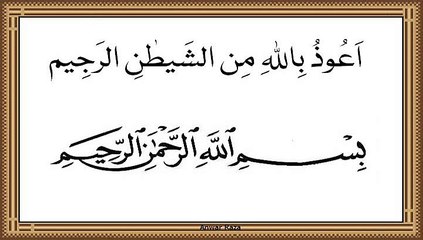 اَعُوذُ بِاللهِ مِنَ الشَيطٰنِ الرَجِيم
بِسْمِ ٱللَّهِ ٱلرَّحْمَٰنِ ٱلرَّحِيمِ
Anwar Raza